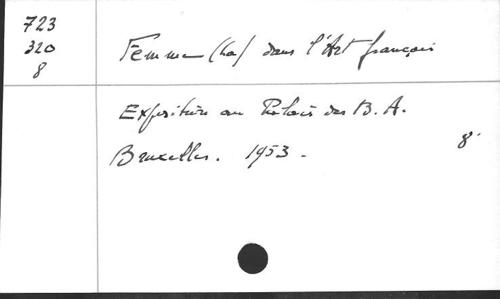 723
320
8
Femme (La) dans l'Art français
Exposition au Palais des B. A.
Bruxelles. 1953.
8°